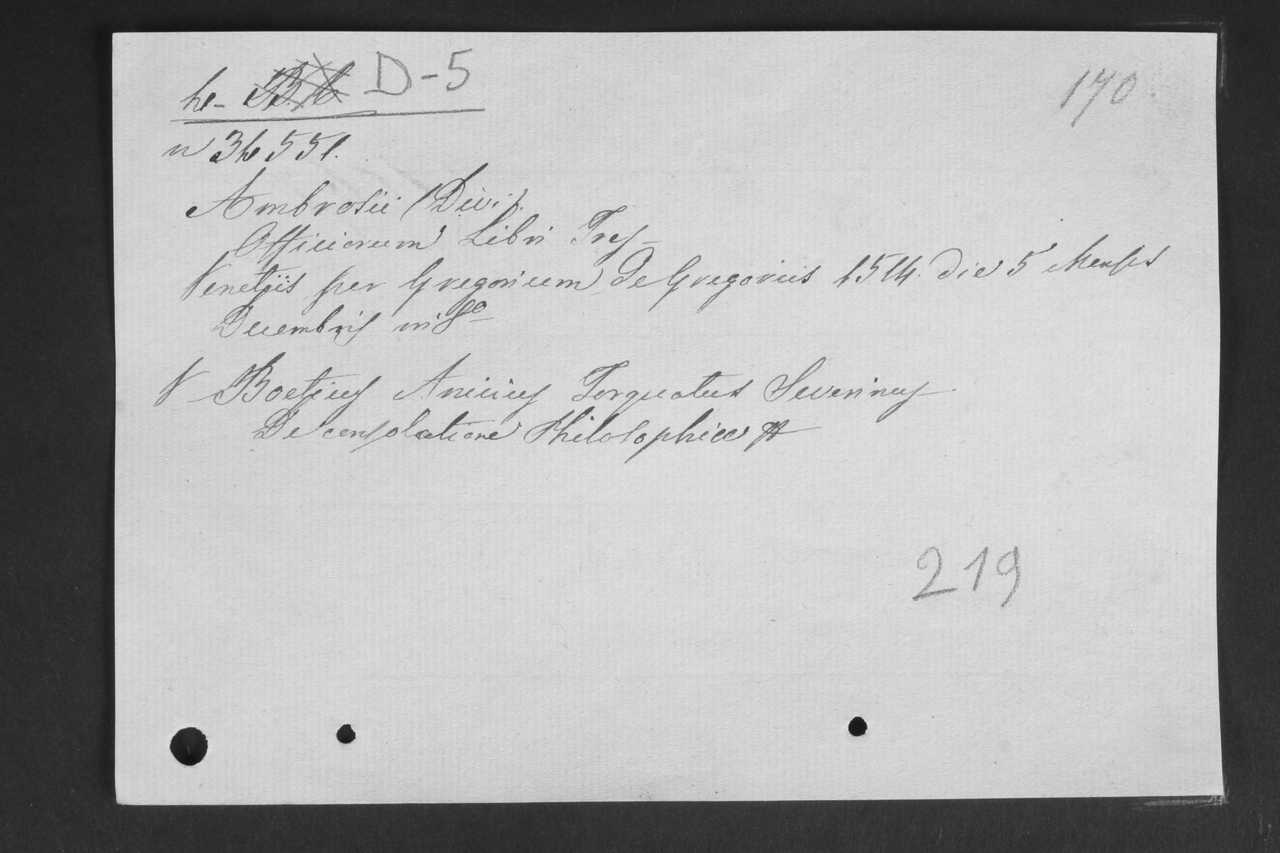 D-5
170
Ambrosii (Divi).
Officiorum Libri Tres
Venetiis per Gregorium de Gregoriis 1514. die 5 Mensis
Decembris in 8º
Boetius Anicius Torquatus Severinus
De consolatione Philosophiae
219